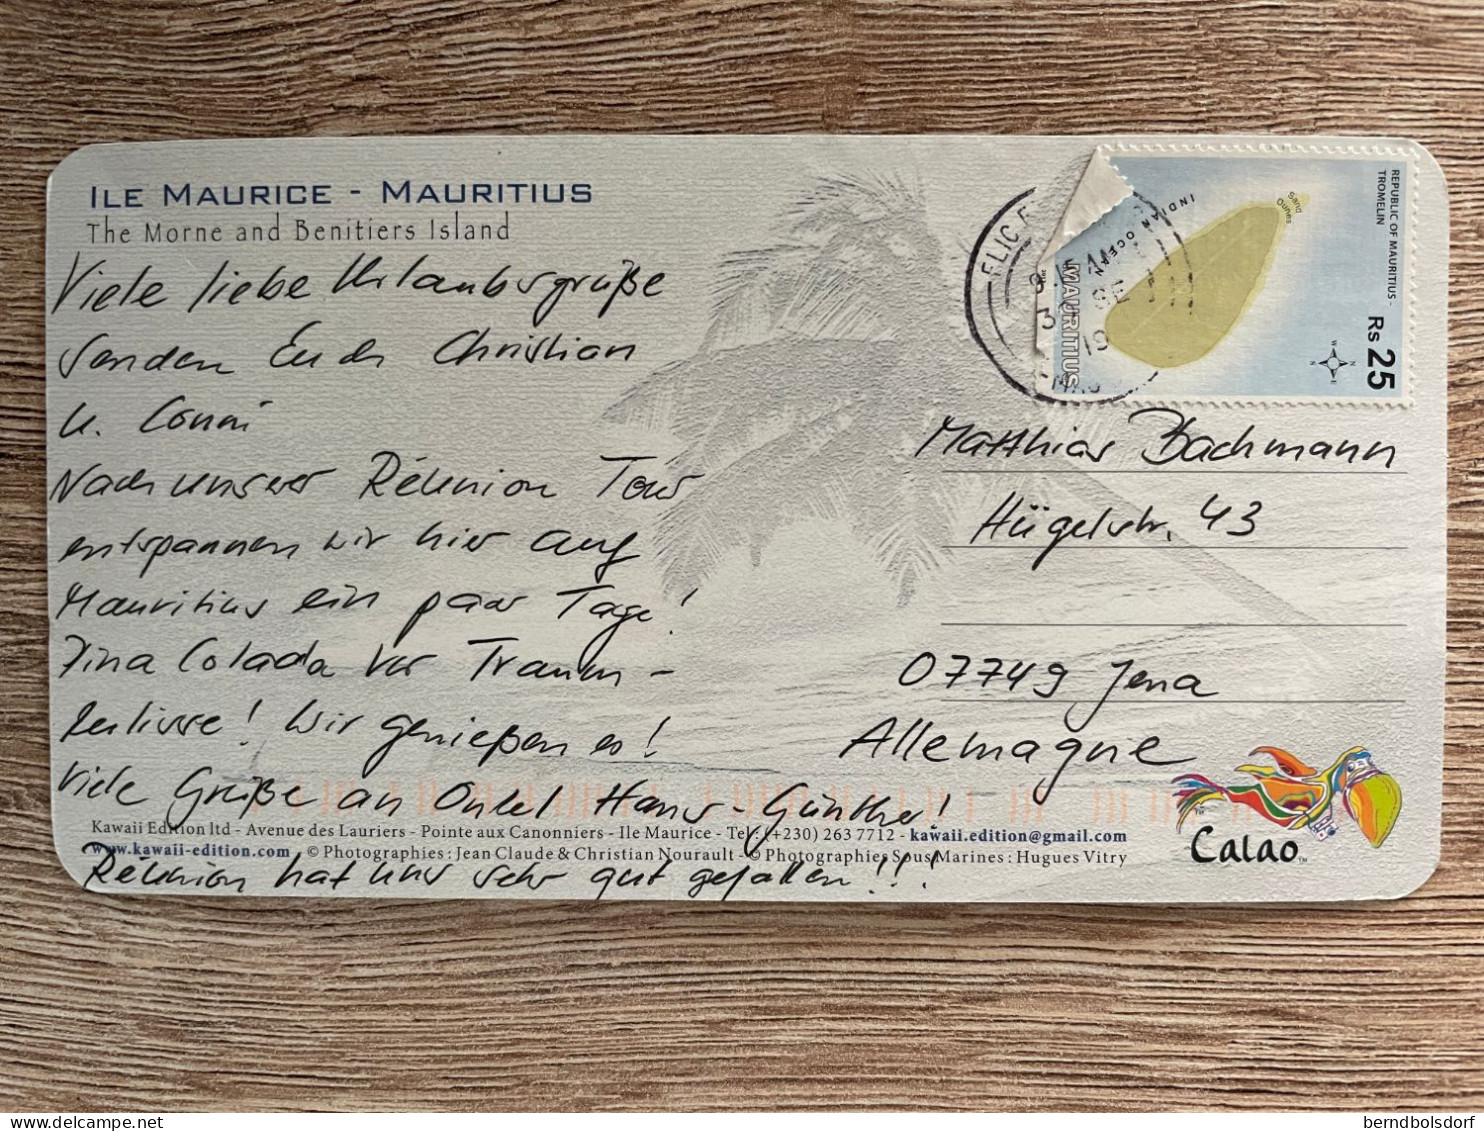 ILE MAURICE - MAURITIUS
The Morne and Benitiers Island
Viele liebe Urlaubsgrüße
senden Euch Christian
u. Conni
Nach unserer Réunion Tour
entspannen wir hier auf
Mauritius ein paar Tage!
Pina Colada vor Traum-
kulisse! Wir genießen es!
Viele Grüße an Onkel Hans-Günther!
Réunion hat uns sehr gut gefallen!!!
REPUBLIC OF MAURITIUS -
TROMELIN
Rs 25
INDIAN OCEAN
Sand
Dunes
MAURITIUS
N
E
S
W
FLIC
Matthias Bachmann
Hügelstr. 43
07749 Jena
Allemagne
Kawaii Edition ltd - Avenue des Lauriers - Pointe aux Canonniers - Ile Maurice - Tel : (+230) 263 7712 - kawaii.edition@gmail.com
www.kawaii-edition.com - © Photographies : Jean Claude & Christian Nourault - © Photographies Sous Marines : Hugues Vitry
Calao TM
berndbolsdorf